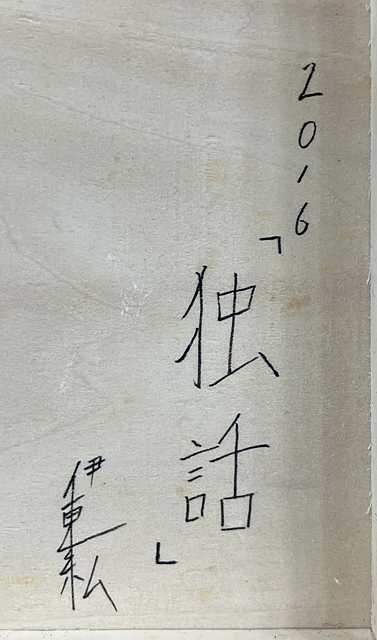 2016
「独話」
伊東